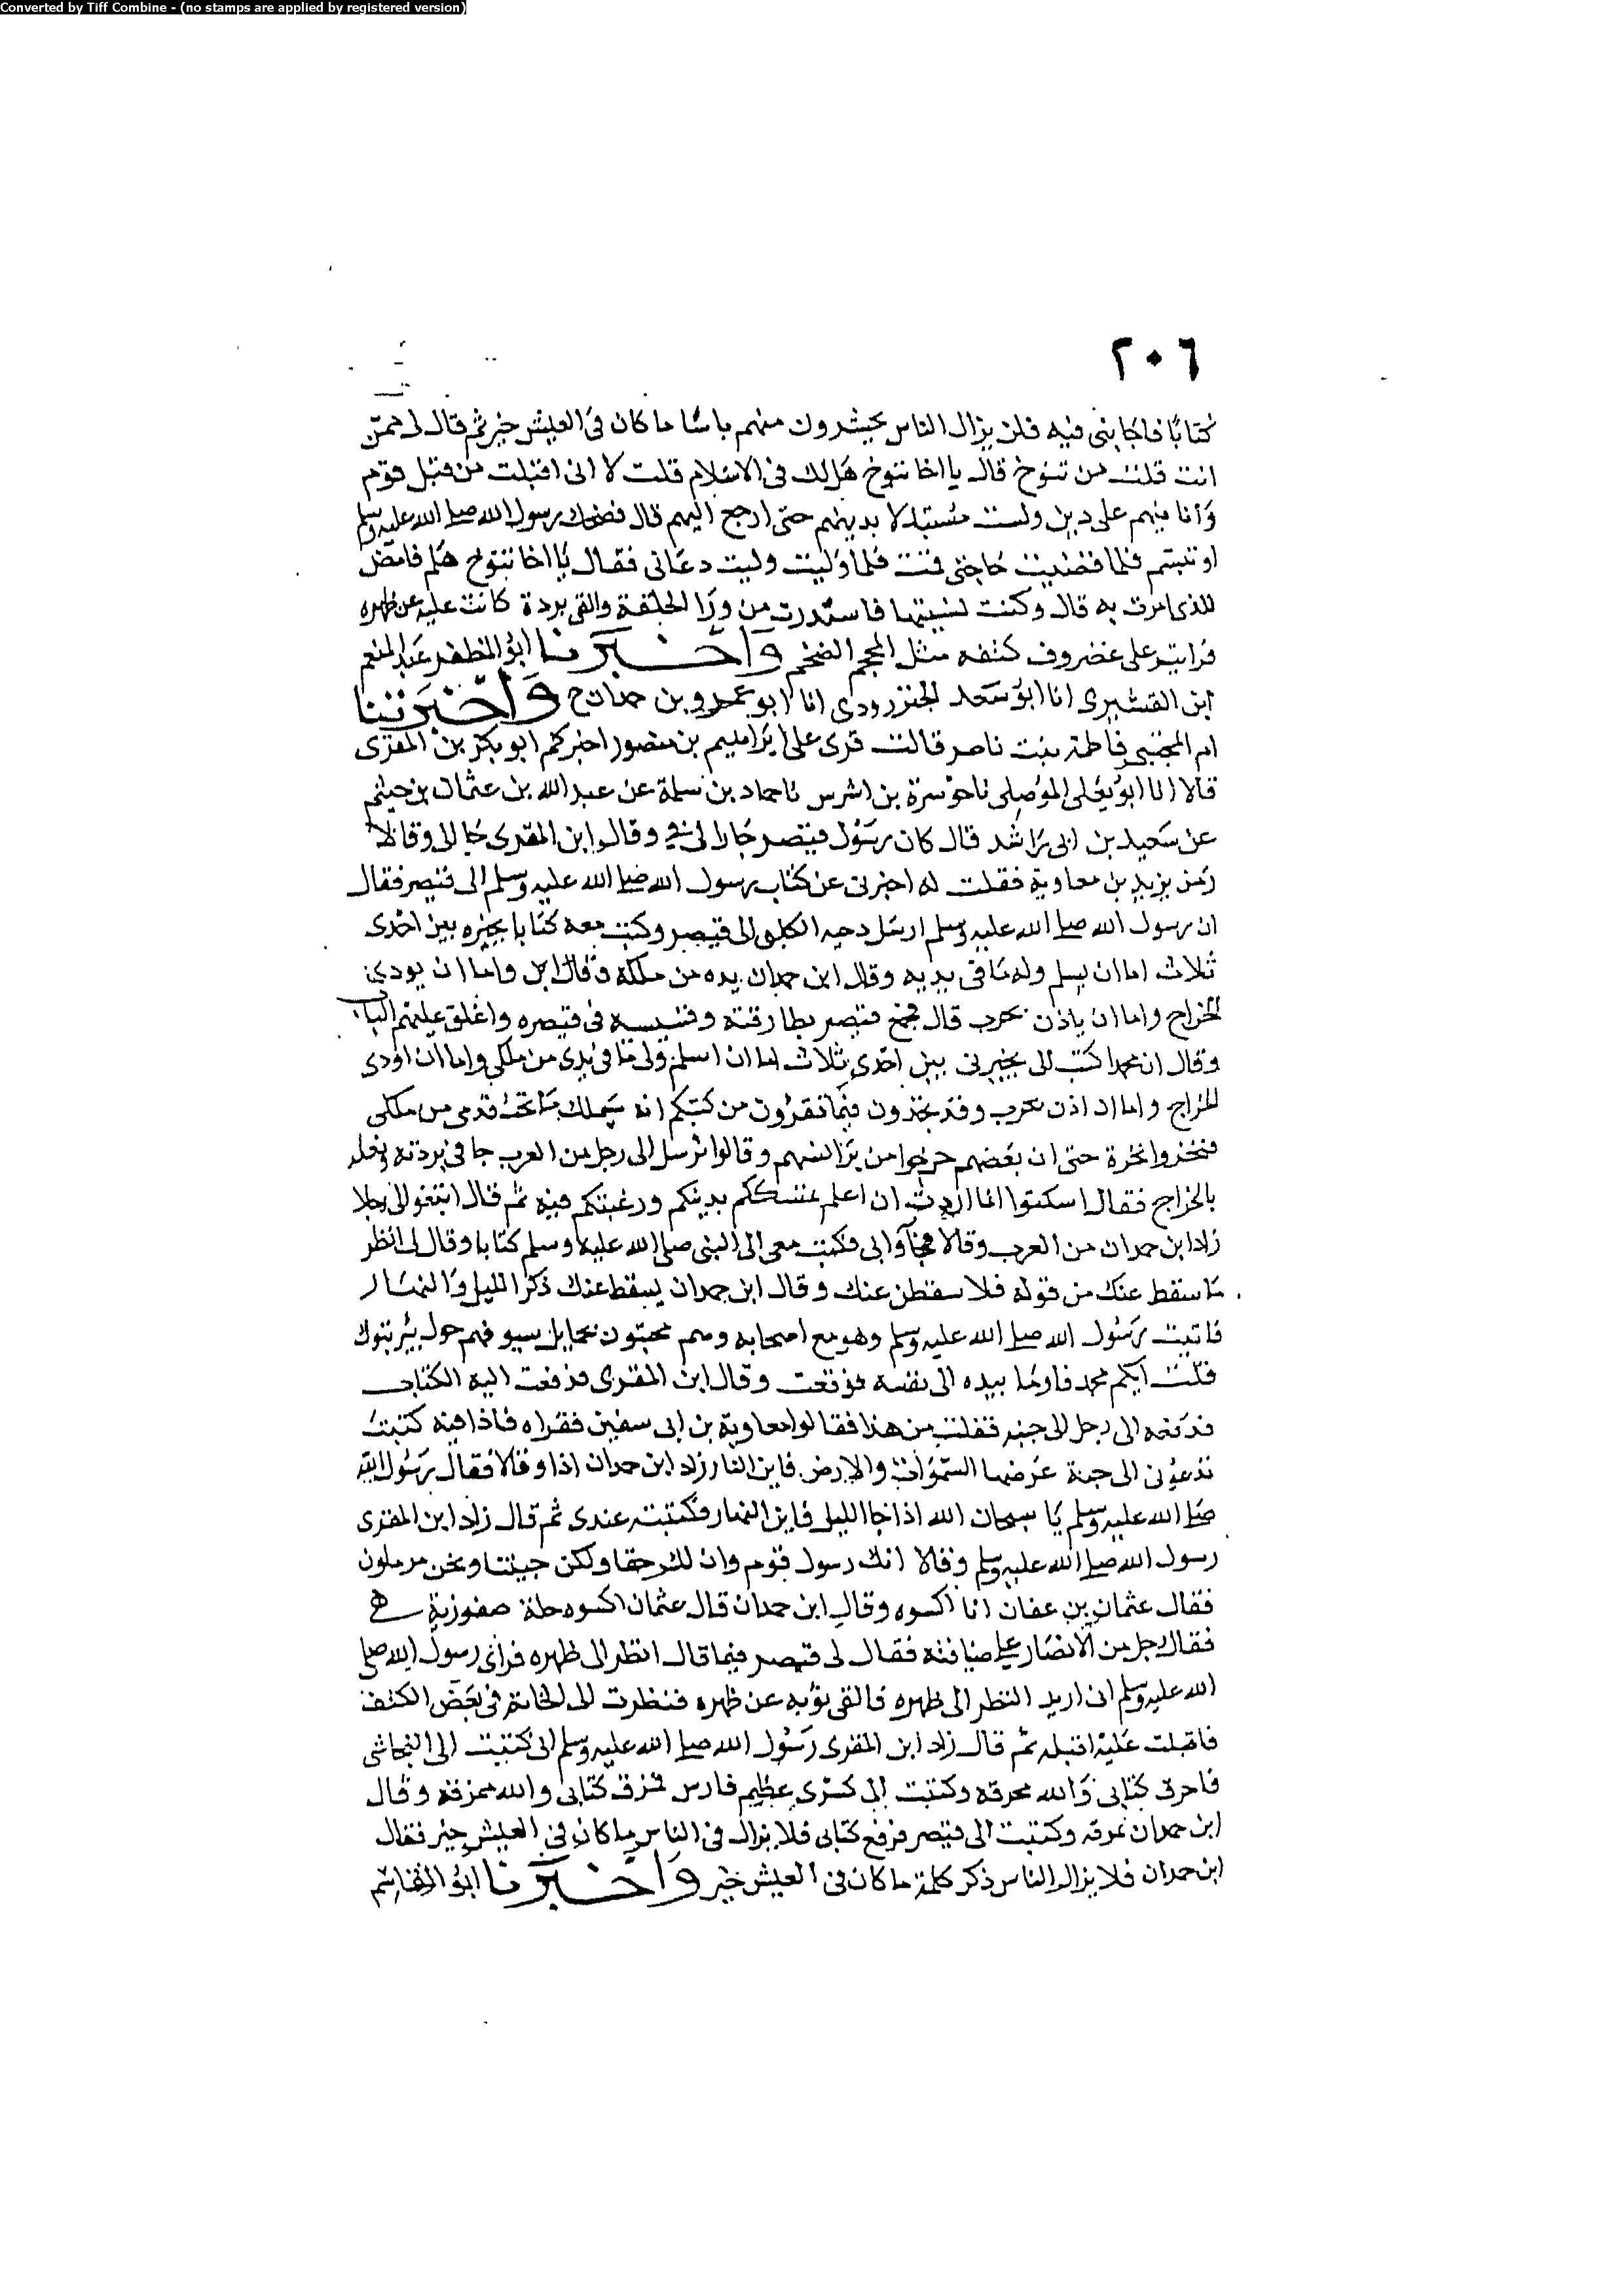 Converted by Tiff Combine - (no stamps are applied by registered version)
٢٠٦
كتابا فاجابنى فيه فلن يزال الناس يخشون منهم باسا ما كان فى العيش خير ثم قال لى ممن
انت قلت من تنوخ قال يا اخا تنوخ هل لك فى الاسلام قلت لا انى اقبلت من قبل قوم
وانا فيهم على دين ولست مستبدلا بدينهم حتى ارجع اليهم قال فضحك رسول الله صلى الله عليه وسلم
او تبسم فلما قضيت حاجتى قمت فلما وليت وليت دعانى فقال يا اخا تنوخ هلم فامض
للذى امرت به قال وكنت نسيتها فاستدرت من ورا الحلقة والقى بردة كانت عليه عن ظهره
فرايت على غضروف كتفه مثل المحجم الضخم واخبرنا ابو المظفر عبد المنعم
ابن القشيرى انا ابو سعد الجنزرودى انا ابو عمرو بن حمدان ح واخبرتنا
ام المجتبى فاطمة بنت ناصر قالت قرى على ابراهيم بن منصور اخبركم ابو بكر بن المقرى
قالا انا ابو يعلى الموصلى نا حوثرة بن اشرس نا حماد بن سلمة عن عبد الله بن عثمان بن خيثم
عن سعيد بن ابى راشد قال كان رسول قيصر جارا لى وقال ابن المقرى جا الى وقالا
زمن يزيد بن معاوية فقلت له اخبرنى عن كتاب رسول الله صلى الله عليه وسلم الى قيصر فقال
ان رسول الله صلى الله عليه وسلم ارسل دحيه الكلبى الى قيصر وكتب معه كتابا يخيره بين احدى
ثلاث اما ان يسلم وله ما فى يديه وقال ابن حمدان يده من ملكه وقال ابن واما ان يودى
الخراج واما ان ياذن بحرب قال فجمع قيصر بطارقته وقسيسه فى قيصره واغلق عليهم الباب
وقال ان محمدا كتب الى يخيرنى بين احدى ثلاث اما ان اسلم ولى ما فى يدى من ملكى واما ان اودى
الخراج واما ان اذن بحرب وقد تجدون فيما تقرؤن من كتبكم انه سيملك ما تحت قدمى من ملكى
فنخروا نخرة حتى ان بعضهم خرجوا من برانسهم وقالوا نرسل الى رجل من العرب جا فى بردته ونعليه
بالخراج فقال اسكتوا انما اردت ان اعلم تمسككم بدينكم ورغبتكم فيه ثم قال ابتغوا لى رجلا
زاد ابن حمدان من العرب وقالا فجاوا بى فكتب معى الى النبى صلى الله عليه وسلم كتابا وقال لى انظر
ما سقط عنك من قوله فلا يسقطن عنك وقال ابن حمدان يسقط عنك ذكر الليل والنهار
فاتيت رسول الله صلى الله عليه وسلم وهو مع اصحابه وهم محتبون بحمايل سيوفهم حول بئر تبوك
فقلت ايكم محمد فاومأ بيده الى نفسه فدفعت وقال ابن المقرى فدفعت اليه الكتاب
فدفعه الى رجل الى جنبه فقلت من هذا فقالوا معاوية بن ابى سفين فقراه فاذا فيه كتبت
تدعونى الى جنة عرضها السموات والارض فاين النار زاد ابن حمدان اذا وقالا فقال رسول الله
صلى الله عليه وسلم يا سبحان الله اذا جا الليل فاين النهار فكتبته عندى ثم قال زاد ابن المقرى
رسول الله صلى الله عليه وسلم وقالا انك رسول قوم وان لك حقا ولكن جيتنا ونحن مرملون
فقال عثمان بن عفان انا اكسوه وقال ابن حمدان قال عثمان اكسوه حلة صفورية
فقال رجل من الانصار على ضيافته فقال لى قيصر فيما قال انظر الى ظهره فراى رسول الله صلى
الله عليه وسلم انى اريد النظر الى ظهره فالقى ثوبه عن ظهره فنظرت الى الخاتم فى بعض الكتف
فاقبلت عليه اقبله ثم قال زاد ابن المقرى رسول الله صلى الله عليه وسلم انى كتبت الى النجاشى
فاحرق كتابى والله محرقه وكتبت الى كسرى عظيم فارس فمزق كتابى والله ممزقه وقال
ابن حمدان تمرقه وكتبت الى قيصر فرفع كتابى فلا يزال فى الناس ما كان فى العيش خير فقال
ابن حمدان فلا يزال الناس ذكر كلمة ما كان فى العيش خير واخبرنا ابو القاسم